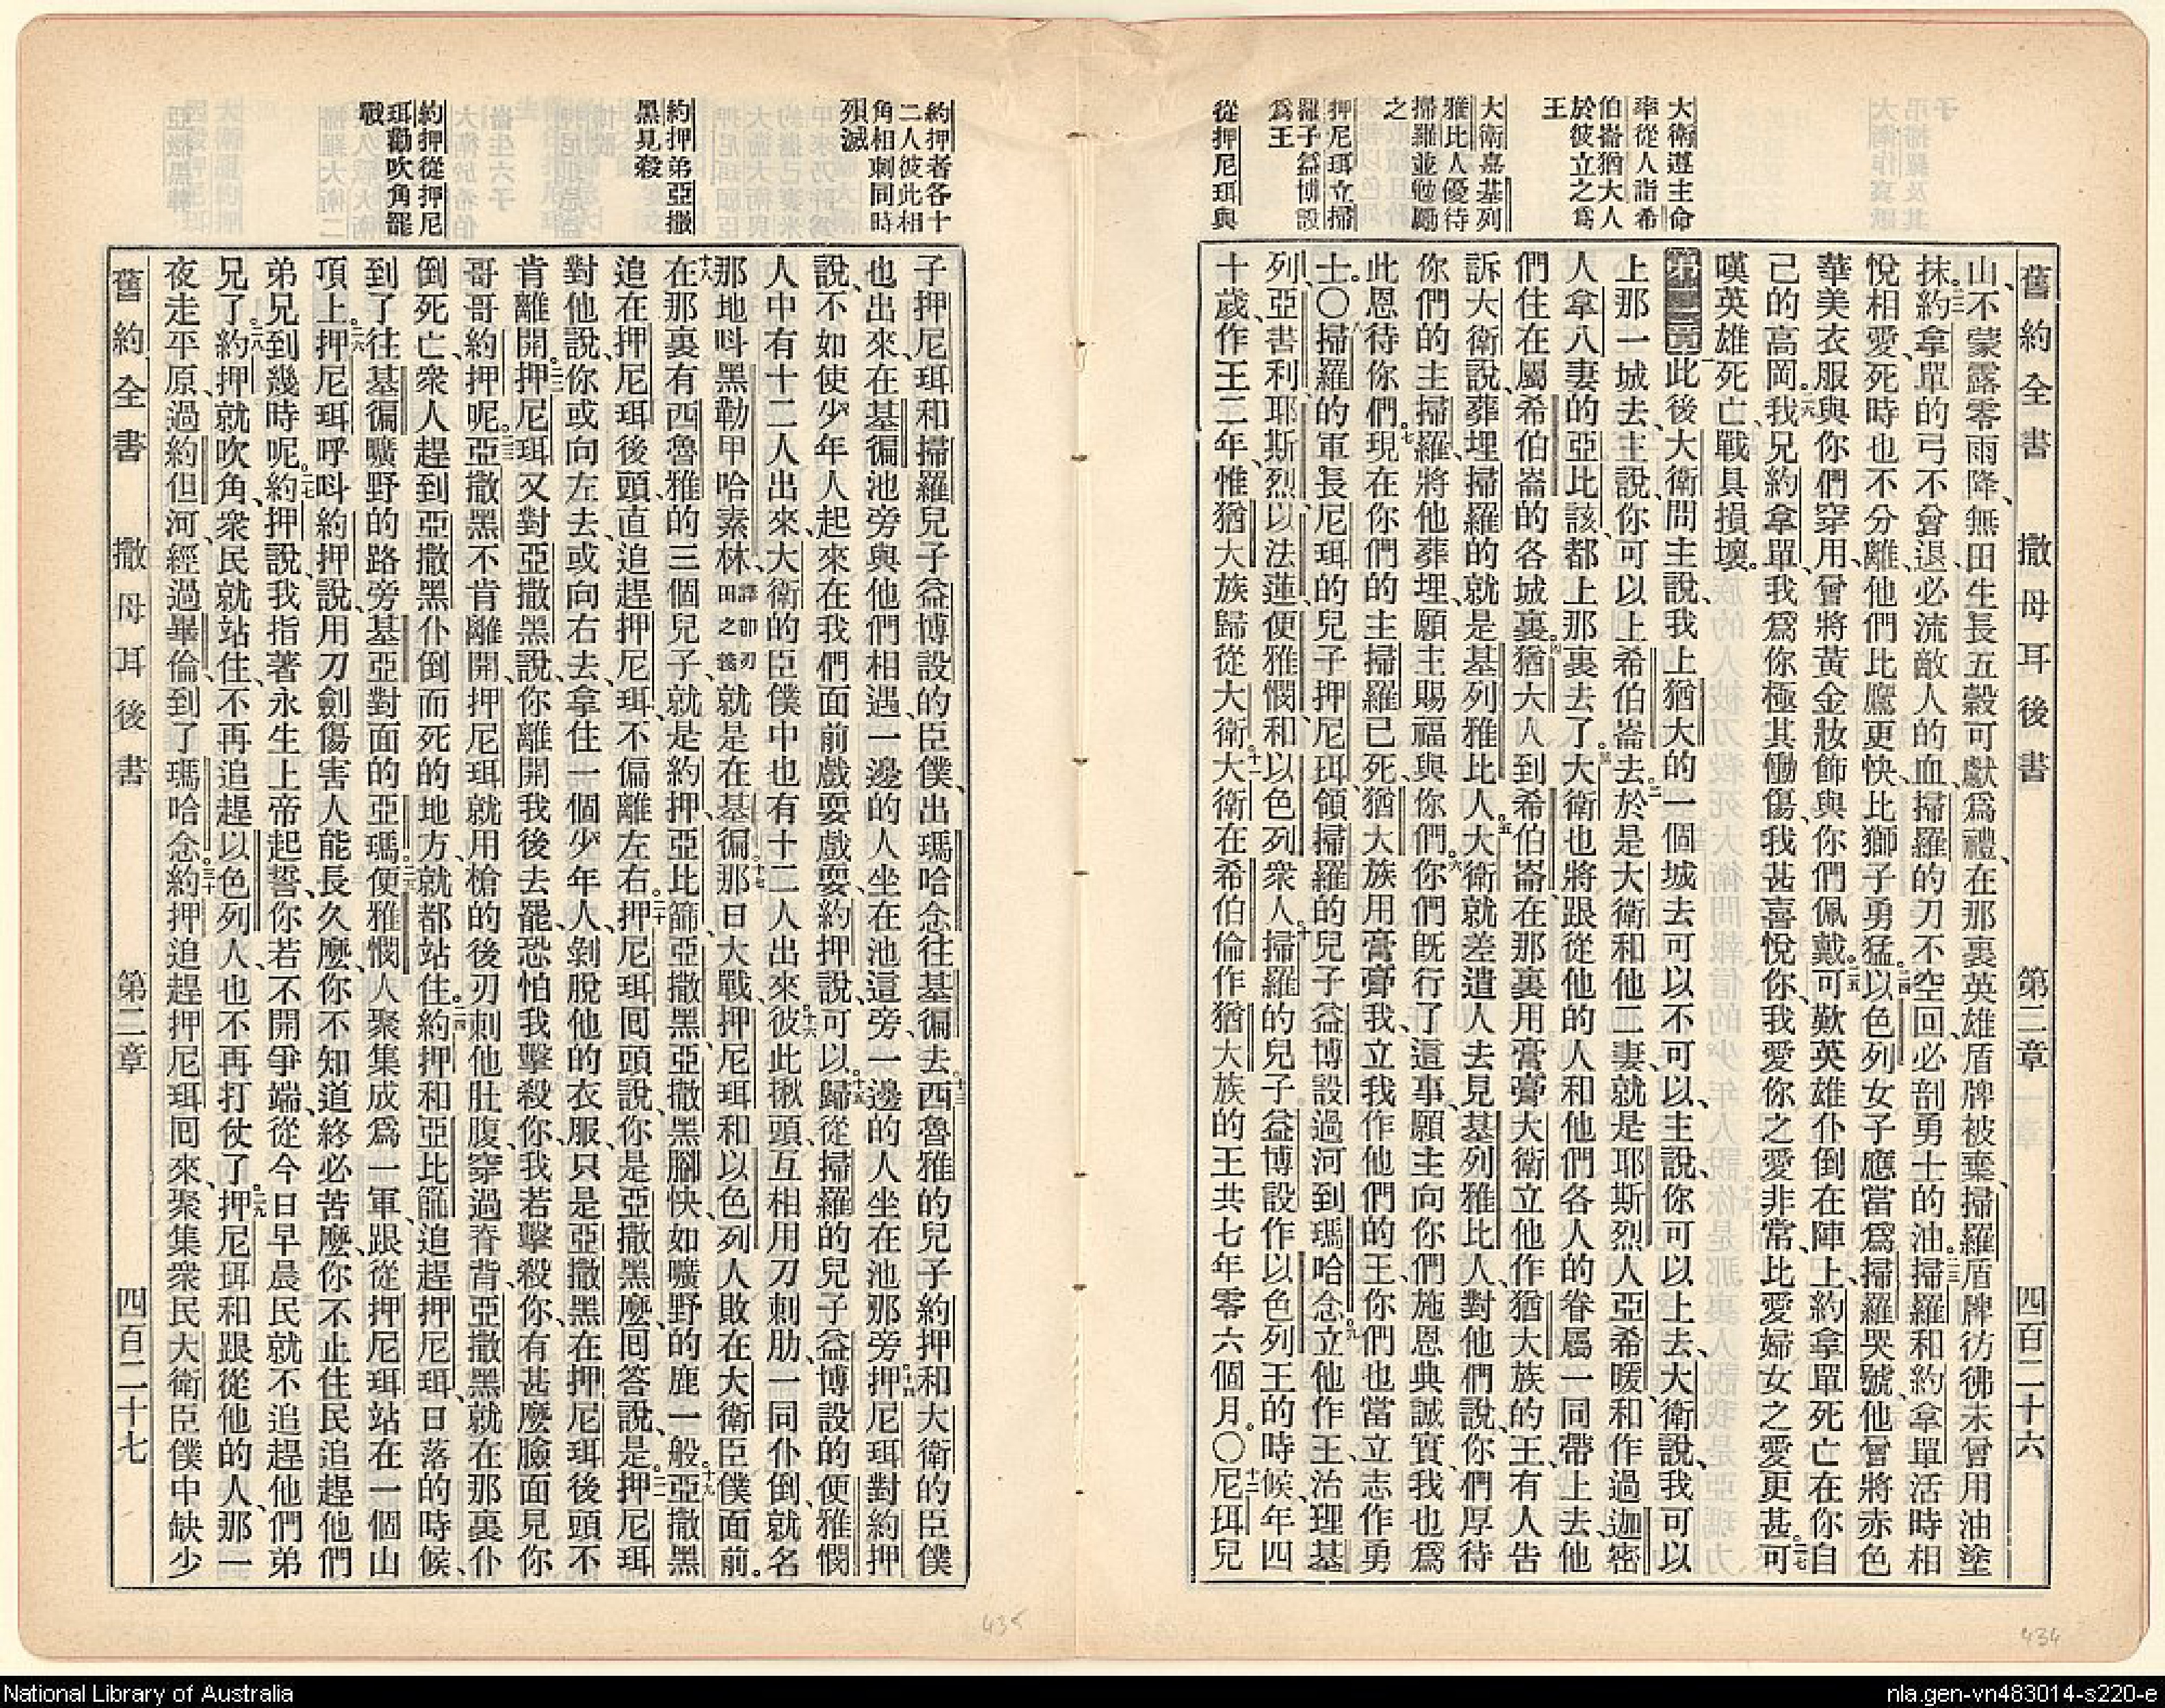 舊約全書 撒母耳後書 第二章 四百二十六
大衛遵主命
率從人詣希
伯崙猶大人
於彼立之爲
王
大衛嘉基列
雅比人優待
掃羅並勉勵
之
押尼珥立掃
羅子益博設
爲王
從押尼珥與
山、不蒙露零雨降、無田生長五穀可獻爲禮、在那裏英雄盾牌被棄、掃羅盾牌彷彿未曾用油塗
抹。約拿單的弓不曾退、必流敵人的血、掃羅的刀不空回、必剖勇士的油。二三掃羅和約拿單活時相
悅相愛、死時也不分離、他們比鷹更快、比獅子勇猛。二四以色列女子應當爲掃羅哭號、他曾將赤色
華美衣服與你們穿用、曾將黃金妝飾與你們佩戴。二五可歎英雄仆倒在陣上、約拿單死亡在你自
己的高岡。二六我兄約拿單、我爲你極其慟傷、我甚喜悅你、我愛你之愛非常、比愛婦女之愛更甚。二七可
嘆英雄死亡、戰具損壞。
第二章此後大衛問主說、我上猶大的一個城去可以不可以、主說、你可以上去、大衛說、我可以
上那一城去、主說、你可以上希伯崙去。二於是大衛和他二妻、就是耶斯烈人亞希暖、和作過迦密
人拿八妻的亞比該、都上那裏去了。三大衛也將跟從他的人和他們各人的眷屬一同帶上去、他
們住在屬希伯崙的各城裏。四猶大人到希伯崙、在那裏用膏膏大衛、立他作猶大族的王、有人告
訴大衛說、葬埋掃羅的就是基列雅比人。五大衛就差遣人去見基列雅比人、對他們說、你們厚待
你們的主掃羅、將他葬埋、願主賜福與你們。六你們既行了這事、願主向你們施恩典誠實、我也爲
此恩待你們。七現在你們的主掃羅已死、猶大族用膏膏我、立我作他們的王、你們也當立志作勇
士。〇八掃羅的軍長尼珥的兒子押尼珥、領掃羅的兒子益博設過河到瑪哈念。九立他作王、治理基
列、亞書利、耶斯烈、以法蓮、便雅憫、和以色列衆人。十掃羅的兒子益博設作以色列王的時候、年四
十歲、作王二年、惟猶大族歸從大衛。十一大衛在希伯倫作猶大族的王、共七年零六個月。〇十二尼珥兒
約押者各十
二人彼此相
角相刺同時
殞滅
約押弟亞撒
黑見殺
約押從押尼
珥勸吹角罷
戰
子押尼珥和掃羅兒子益博設的臣僕、出瑪哈念往基徧去。十三西魯雅的兒子約押和大衛的臣僕
也出來、在基徧池旁與他們相遇、一邊的人坐在池這旁、一邊的人坐在池那旁。十四押尼珥對約押
說、不如使少年人起來、在我們面前戲耍戲耍、約押說、可以。十五歸從掃羅的兒子益博設的便雅憫
人中有十二人出來、大衛的臣僕中也有十二人出來。十六彼此揪頭、互相用刀刺肋、一同仆倒、就名
那地呌黑勒甲哈素林、譯即刃田之義就是在基徧。十七那日大戰、押尼珥和以色列人敗在大衛臣僕面前。
十八在那裏有西魯雅的三個兒子、就是約押、亞比篩、亞撒黑、亞撒黑腳快如曠野的鹿一般。十九亞撒黑
追在押尼珥後頭、直追趕押尼珥、不偏離左右。二十押尼珥囘頭說、你是亞撒黑麽、囘答說、是。二一押尼珥
對他說、你或向左去、或向右去、拿住一個少年人、剝脫他的衣服、只是亞撒黑在押尼珥後頭不
肯離開。二二押尼珥又對亞撒黑說、你離開我後去罷、恐怕我擊殺你、我若擊殺你、有甚麽臉面見你
哥哥約押呢。二三亞撒黑不肯離開、押尼珥就用槍的後刃刺他肚腹、穿過脊背、亞撒黑就在那裏仆
倒死亡、衆人趕到亞撒黑仆倒而死的地方、就都站住。二四約押和亞比篩追趕押尼珥、日落的時候、
到了往基徧曠野的路旁、基亞對面的亞瑪。二五便雅憫人聚集成爲一軍、跟從押尼珥、站在一個山
項上。二六押尼珥呼呌約押說、用刀劍傷害人能長久麽、你不知道終必苦麽、你不止住民追趕他們
弟兄到幾時呢。二七約押說、我指著永生上帝起誓、你若不開爭端、從今日早晨民就不追趕他們弟
兄了。二八約押就吹角、衆民就站住、不再追趕以色列人、也不再打仗了。二九押尼珥和跟從他的人、那一
夜走平原、過約但河、經過畢倫、到了瑪哈念。三十約押追趕押尼珥囘來、聚集衆民、大衛臣僕中缺少
舊約全書 撒母耳後書 第二章 四百二十七
435
434
National Library of Australia
nla.gen-vn483014-s220-e